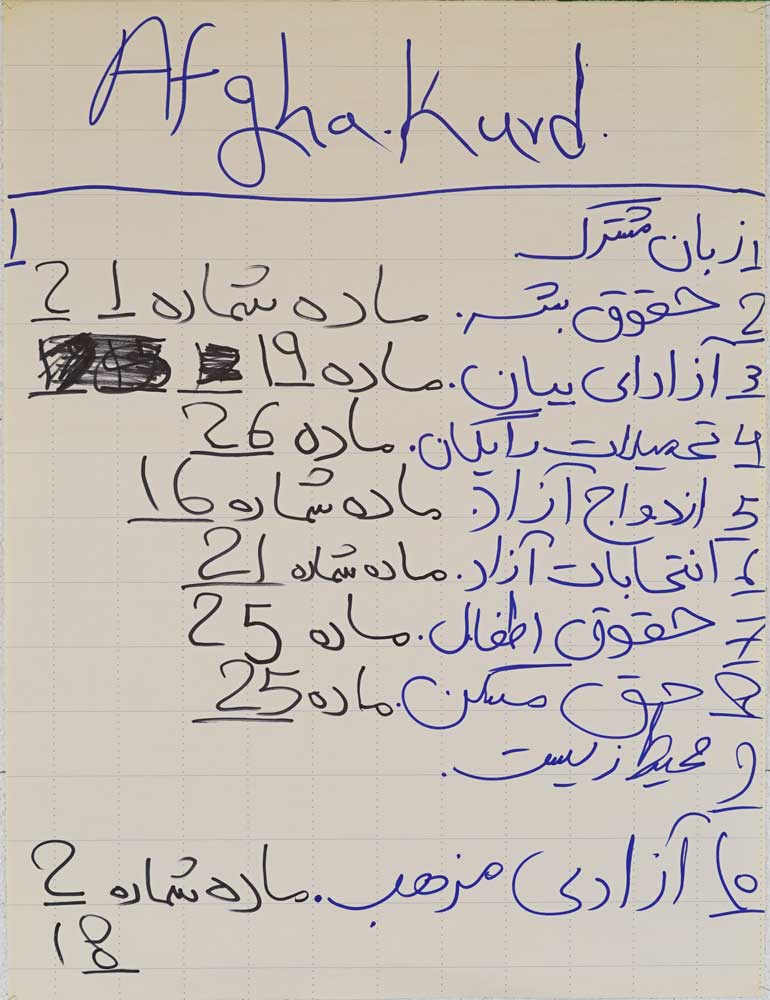 Afgha.Kurd.
1
1 زبان مشترک.
2 حقوق بشر. ماده شماره 1 2
3 آزادای بیان. ماده 19
4 تحصیلات رایگان. ماده 26
5 ازدواج آزاد. ماده شماره 16
6 انتخابات آزاد. ماده شماره 21
7 حقوق اطفال. ماده 25
8 حق مسکن. ماده 25
9 محیط زیست.
10 آزادی مزهب. ماده شماره 2
18